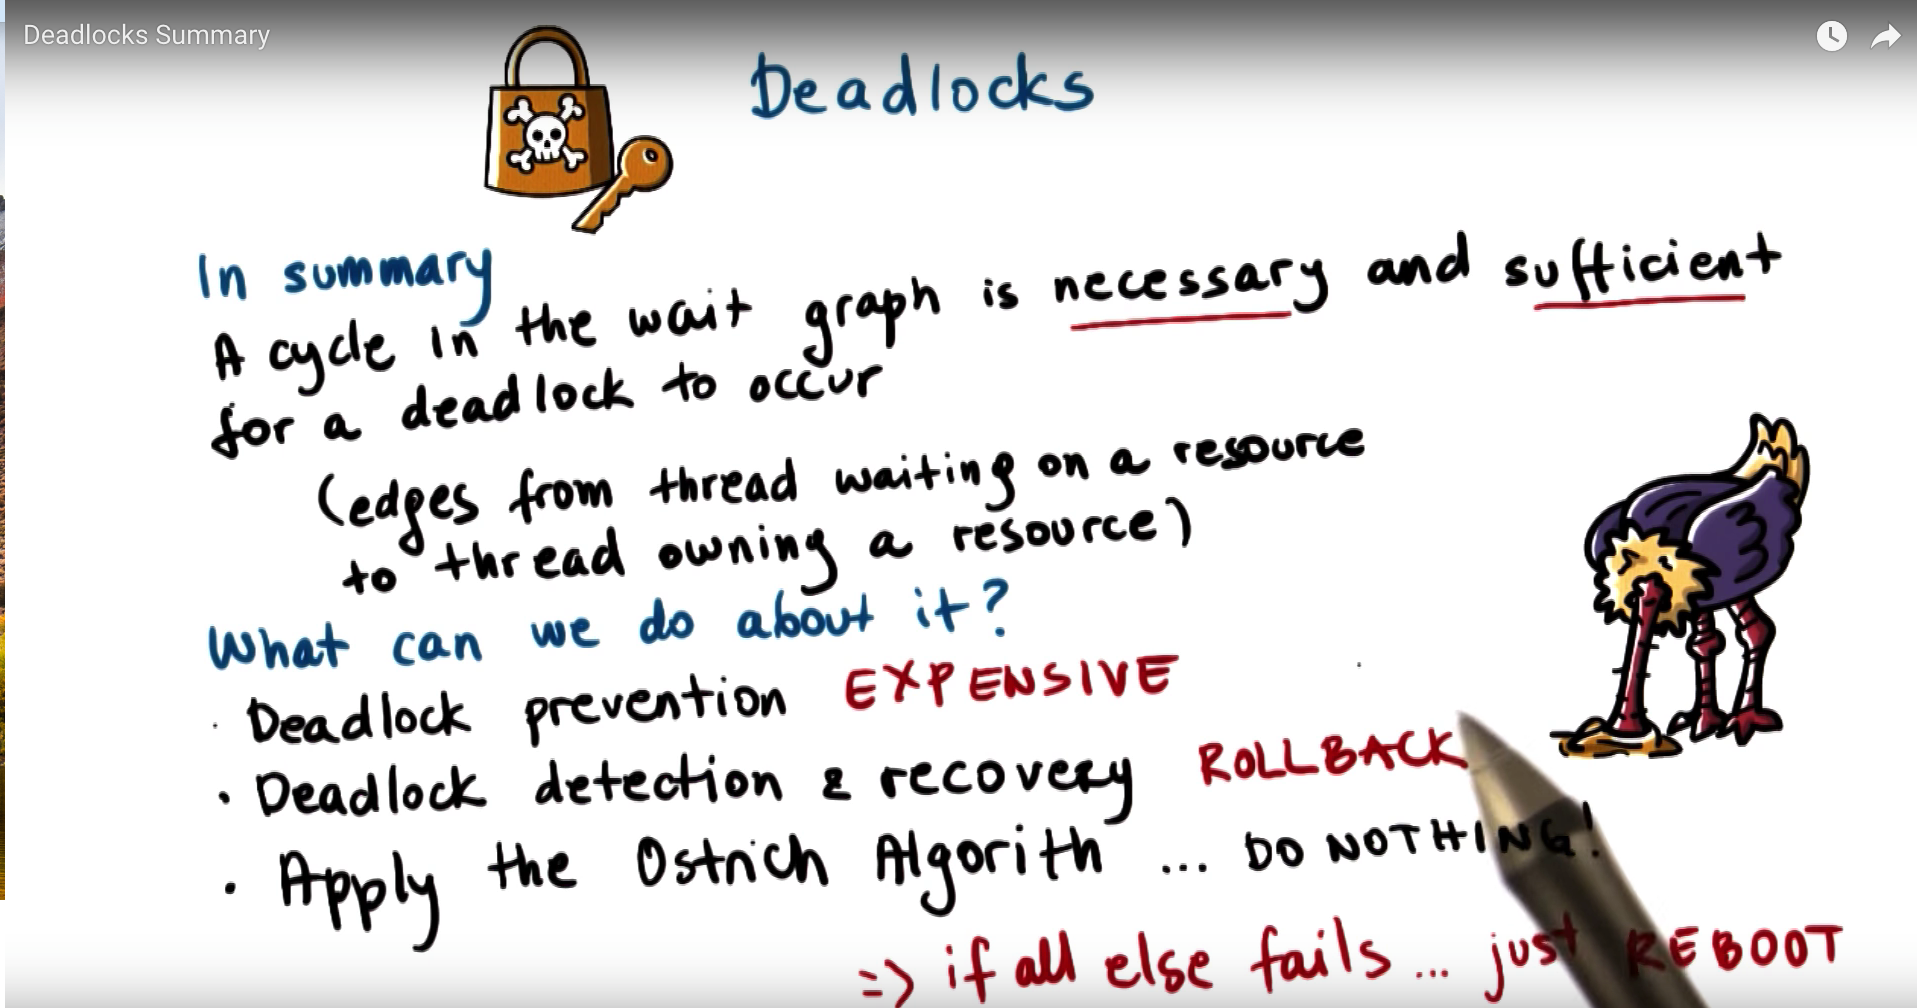 Deadlocks Summary
Deadlocks
In summary
A cycle in the wait graph is necessary and sufficient
for a deadlock to occur
(edges from thread waiting on a resource
to thread owning a resource)
What can we do about it?
• Deadlock prevention EXPENSIVE
• Deadlock detection & recovery ROLLBACK
• Apply the Ostrich Algorith ... DO NOTHING!
=> if all else fails ... just REBOOT